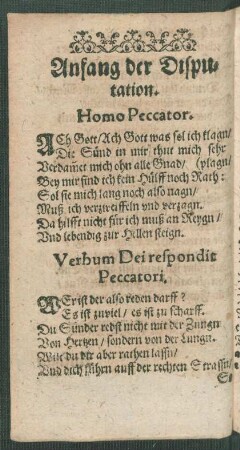 Anfang der Dispu-
tation.
Homo Peccator.
ACh Gott/Ach Gott was sol ich klagn/
Die Sünd in mir thut mich sehr
Verdam̃et mich ohn alle Gnad/ (plagn/
Bey mir find ich kein Hülff noch Rath:
Sol sie mich lang noch also nagn/
Muß ich verzweiffeln vnd verzagn.
Da hilfft nicht für ich muß an Reygn/
Vnd lebendig zur Hellen steign.
Verbum Dei respondit
Peccatori.
WEr ist der also reden darff?
Es ist zuviel/ es ist zu scharff.
Du Sünder redst nicht mit der Zungn
Von Hertzen/ sondern von der Lungn.
Wilt du dir aber rathen lassn/
Vnd dich führn auff der rechten Strassn/